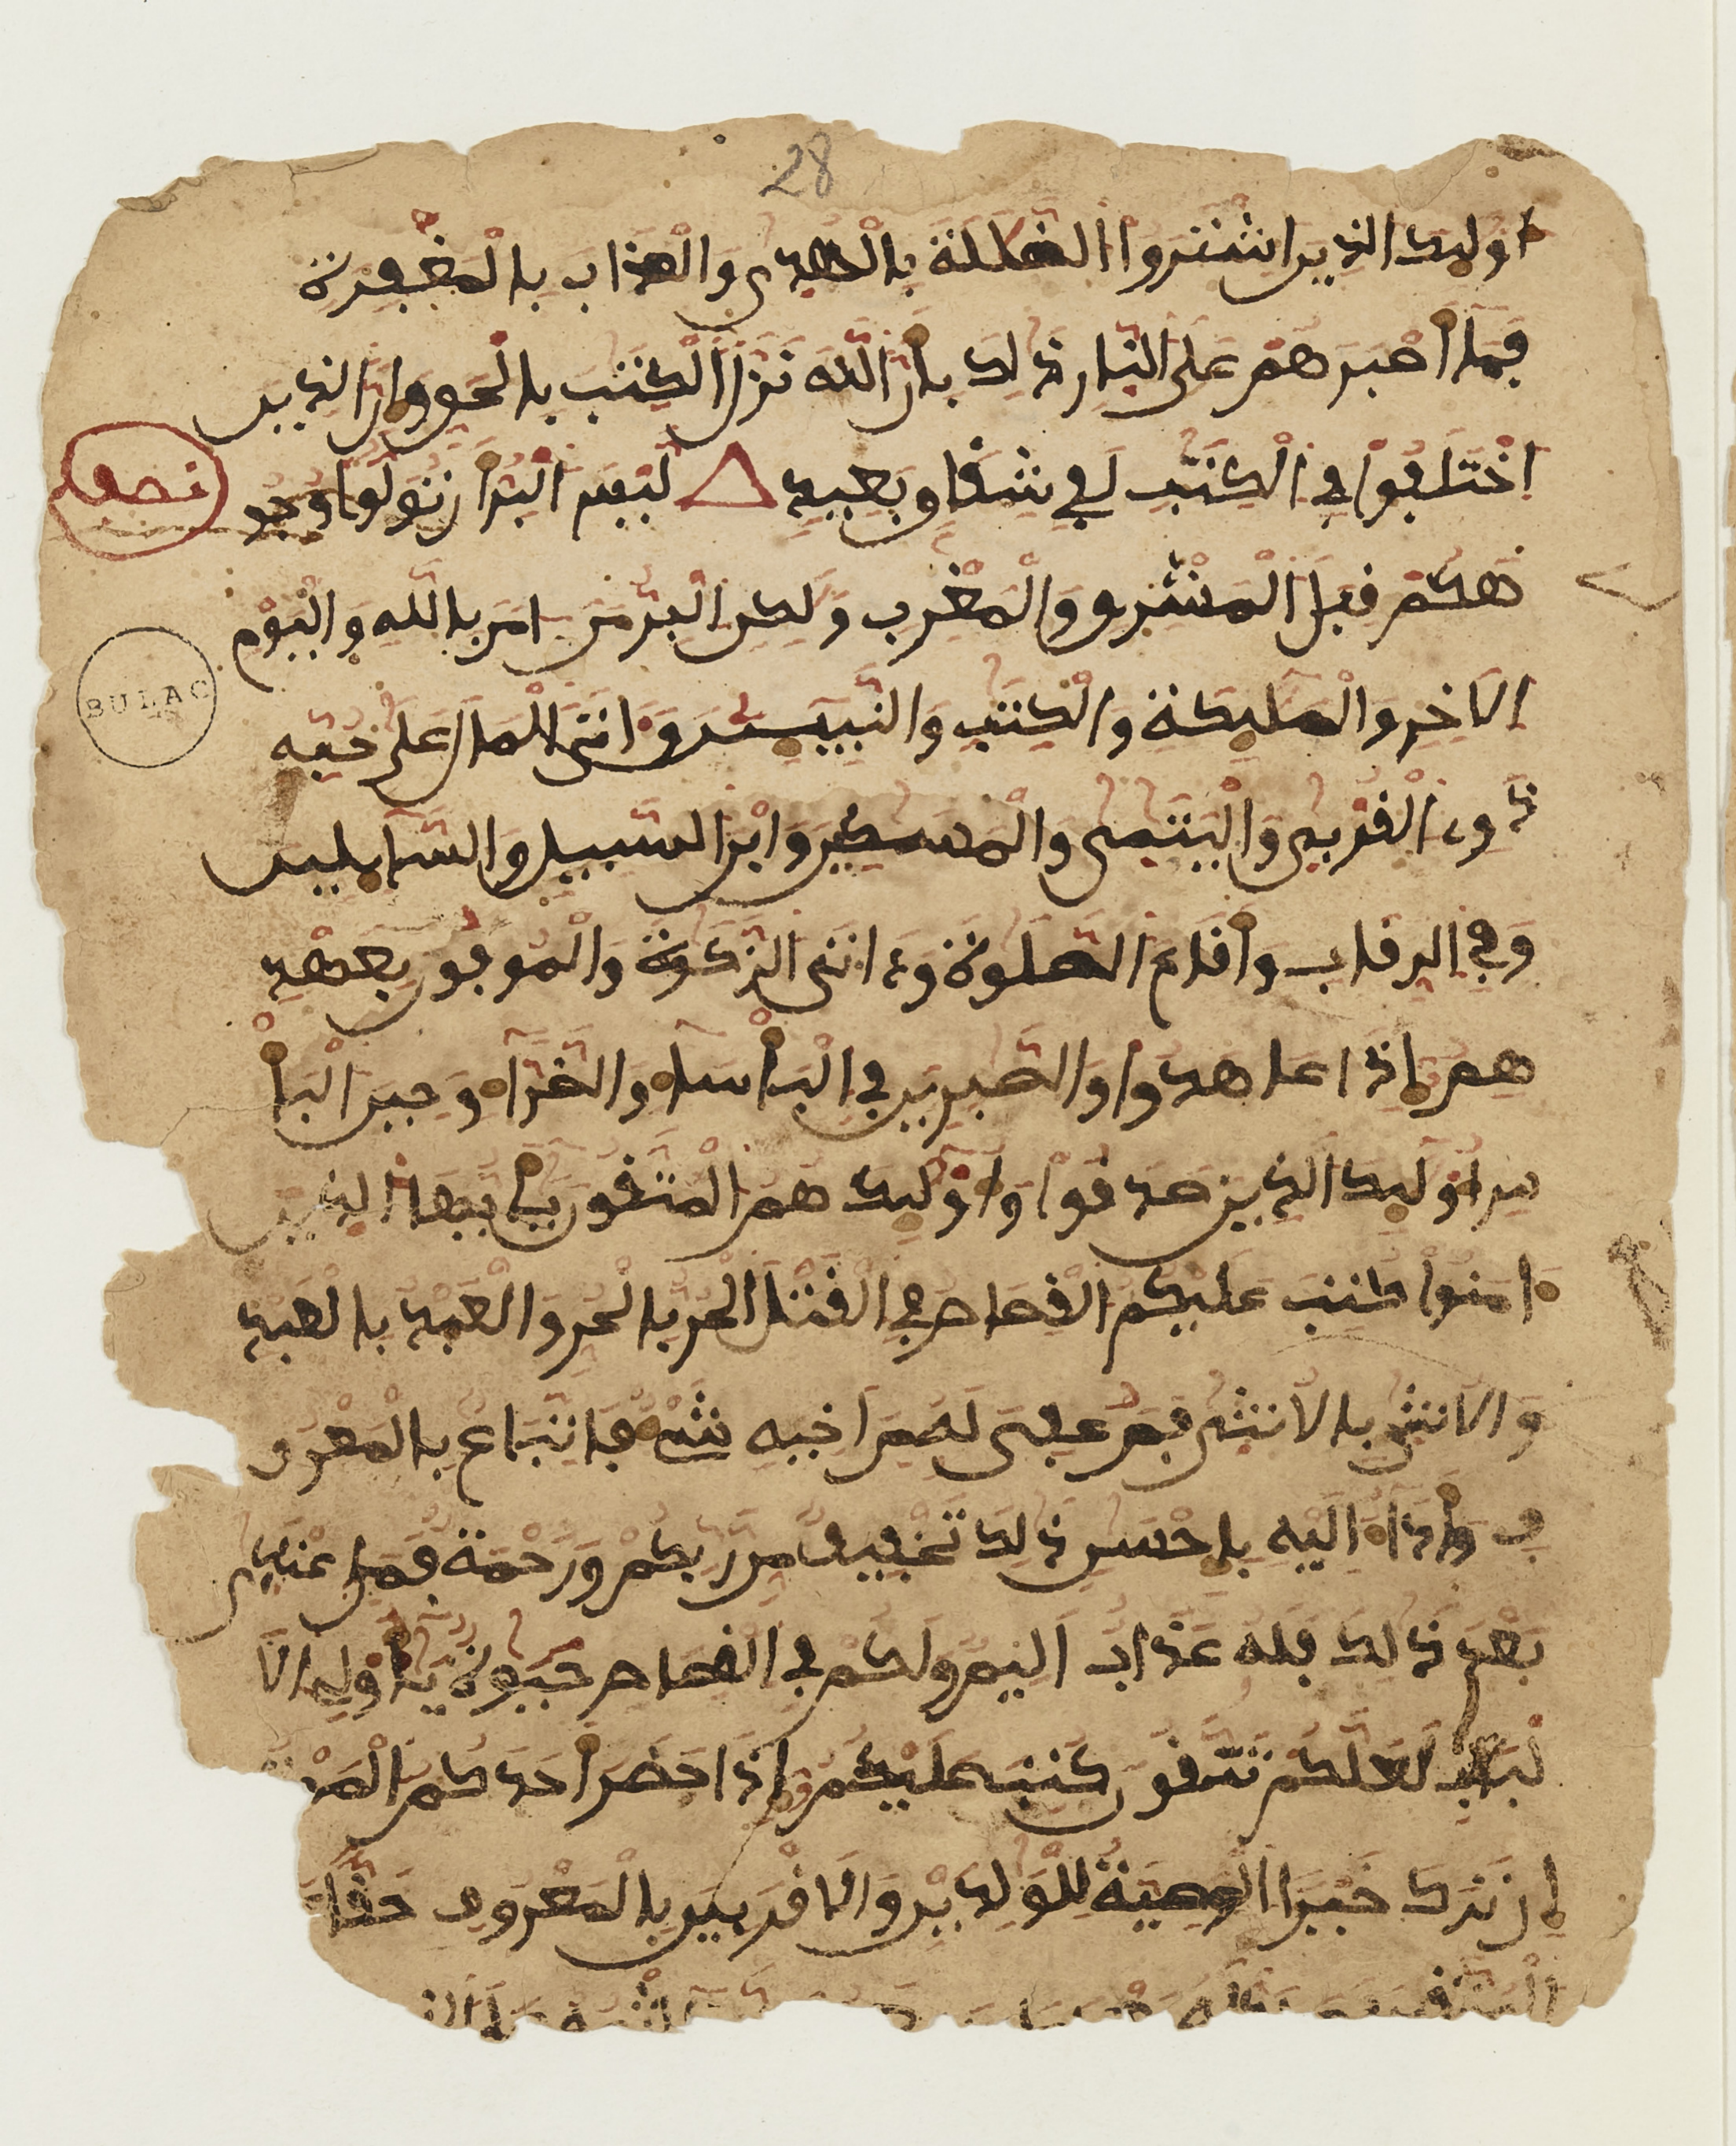 28
اوليك الذين اشتروا الضللة بالهدى والعذاب بالمغفرة
فما أصبرهم على النار ذلك بأن الله نزل الكتب بالحق وان الذين
اختلفوا في الكتب لفي شقاق بعيد ليس البر أن تولوا وجو
نصف
هكم قبل المشرق والمغرب ولكن البر من امن بالله واليوم
BULAC
الاخر والمليكة والكتب والنبيين وءاتى المال على حبه
ذوى القربى واليتمى والمسكين وابن السبيل والسايلين
وفي الرقاب وأقام الصلوة وءاتى الزكوة والموفون بعهد
هم إذا عاهدوا والصبرين في البأساء والضراء وحين البأ
س اوليك الذين صدقوا واوليك هم المتقون يايها الذين
ءامنوا كتب عليكم القصاص في القتلى الحر بالحر والعبد بالعبد
والانثى بالانثى فمن عفى له من اخيه شىء فاتباع بالمعرو
ف وأداء اليه بإحسن ذلك تخفيف من ربكم ورحمة فمن اعتدى
بعد ذلك فله عذاب اليم ولكم في القصاص حيوة يأولى الا
لبب لعلكم تتقون كتب عليكم إذا حضر أحدكم المو
إن ترك خيرا الوصية للولدين والاقربين بالمعروف حقا